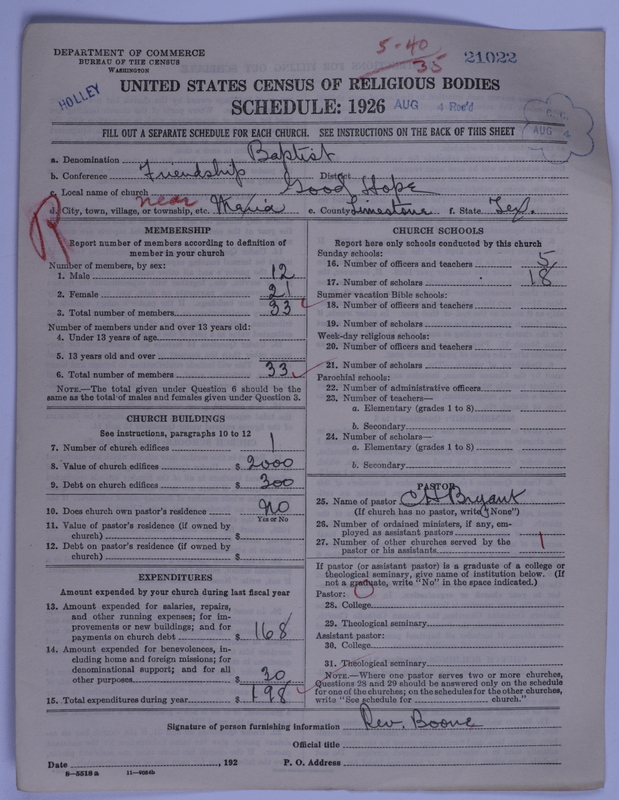 DEPARTMENT OF COMMERCE
BUREAU OF THE CENSUS
WASHINGTON
5-40
35
21022
HOLLEY
UNITED STATES CENSUS OF RELIGIOUS BODIES
SCHEDULE: 1926
AUG 4 Rec'd
AUG 4
FILL OUT A SEPARATE SCHEDULE FOR EACH CHURCH. SEE INSTRUCTIONS ON THE BACK OF THIS SHEET
a. Denomination Baptist
b. Conference Friendship District
c. Local name of church Good Hope
d. City, town, village, or township, etc. near e. County Limestone f. State Tex.
R
MEMBERSHIP
Report number of members according to definition of member in your church
Number of members, by sex:
1. Male 12
2. Female 21
3. Total number of members 33
Number of members under and over 13 years old:
4. Under 13 years of age
5. 13 years old and over
6. Total number of members 33
NOTE.—The total given under Question 6 should be the
same as the total of males and females given under Question 3.
CHURCH BUILDINGS
See instructions, paragraphs 10 to 12
7. Number of church edifices 1
8. Value of church edifices $ 2000
9. Debt on church edifices $ 300
10. Does church own pastor's residence No
Yes or No
11. Value of pastor's residence (if owned by
church) $
12. Debt on pastor's residence (if owned by
church) $
EXPENDITURES
Amount expended by your church during last fiscal year
13. Amount expended for salaries, repairs,
and other running expenses; for im-
provements or new buildings; and for
payments on church debt $ 168
14. Amount expended for benevolences, in-
cluding home and foreign missions; for
denominational support; and for all
other purposes $ 30
15. Total expenditures during year $ 198
CHURCH SCHOOLS
Report here only schools conducted by this church
Sunday schools:
16. Number of officers and teachers 5
17. Number of scholars 18
Summer vacation Bible schools:
18. Number of officers and teachers
19. Number of scholars
Week-day religious schools:
20. Number of officers and teachers
21. Number of scholars
Parochial schools:
22. Number of administrative officers
23. Number of teachers—
a. Elementary (grades 1 to 8)
b. Secondary
24. Number of scholars—
a. Elementary (grades 1 to 8)
b. Secondary
PASTOR
25. Name of pastor C H Bryant
(If church has no pastor, write "None")
26. Number of ordained ministers, if any, em-
ployed as assistant pastors
27. Number of other churches served by the
pastor or his assistants 1
If pastor (or assistant pastor) is a graduate of a college or
theological seminary, give name of institution below. (If
not a graduate, write "No" in the space indicated.)
Pastor:
28. College
29. Theological seminary
Assistant pastor:
30. College
31. Theological seminary
NOTE.—Where one pastor serves two or more churches,
Questions 28 and 29 should be answered only on the schedule
for one of the churches; on the schedules for the other churches,
write "See schedule for church."
Signature of person furnishing information Rev. Boone
Official title
Date , 192 P. O. Address
8—5518 a 11—9024b